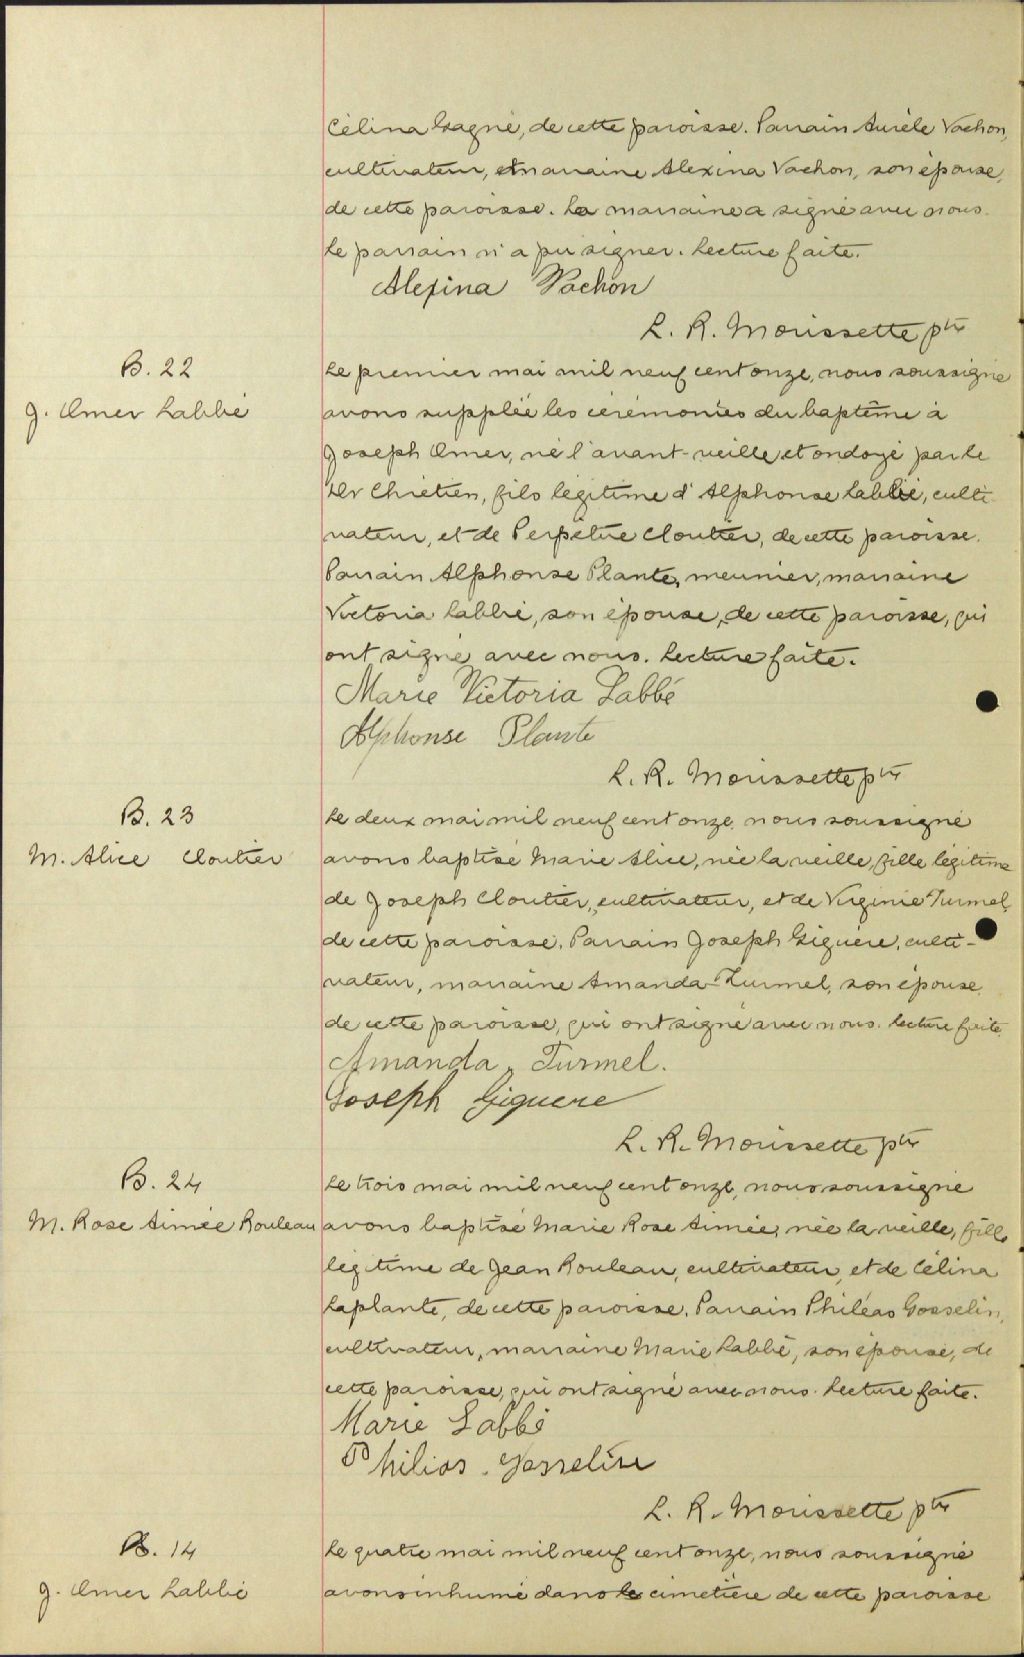 Célina Gagné, de cette paroisse. Parrain Aurèle Vachon,
cultivateur, et marraine Alexina Vachon, son épouse,
de cette paroisse. La marraine a signé avec nous.
Le parrain n'a pu signer. Lecture faite.
Alexina Vachon
L. R. Morissette ptre
B. 22
J. Omer Labbé
Le premier mai mil neuf cent onze, nous soussigné
avons suppléé les cérémonies du baptême à
Joseph Omer, né l'avant-veille et ondoyé par le
Dr Chrétien, fils légitime d'Alphonse Labbé, culti-
vateur, et de Perpétue Cloutier, de cette paroisse.
Parrain Alphonse Plante, meunier, marraine
Victoria Labbé, son épouse, de cette paroisse, qui
ont signé avec nous. Lecture faite.
Marie Victoria Labbé
Alphonse Plante
L. R. Morissette ptre
B. 23
M. Alice Cloutier
Le deux mai mil neuf cent onze, nous soussigné
avons baptisé Marie Alice, née la veille, fille légitime
de Joseph Cloutier, cultivateur, et de Virginie Turmel,
de cette paroisse. Parrain Joseph Giguère, culti-
vateur, marraine Amanda Turmel, son épouse,
de cette paroisse, qui ont signé avec nous. Lecture faite.
Amanda Turmel.
Joseph Giguere
L. R. Morissette ptre
B. 24
M. Rose Aimée Rouleau
Le trois mai mil neuf cent onze, nous soussigné
avons baptisé Marie Rose Aimée, née la veille, fille
légitime de Jean Rouleau, cultivateur, et de Célina
Laplante, de cette paroisse. Parrain Philéas Gosselin,
cultivateur, marraine Marie Labbé, son épouse, de
cette paroisse, qui ont signé avec nous. Lecture faite.
Marie Labbé
Philias Gosselin
L. R. Morissette ptre
S. 14
J. Omer Labbé
Le quatre mai mil neuf cent onze, nous soussigné
avons inhumé dans le cimetière de cette paroisse